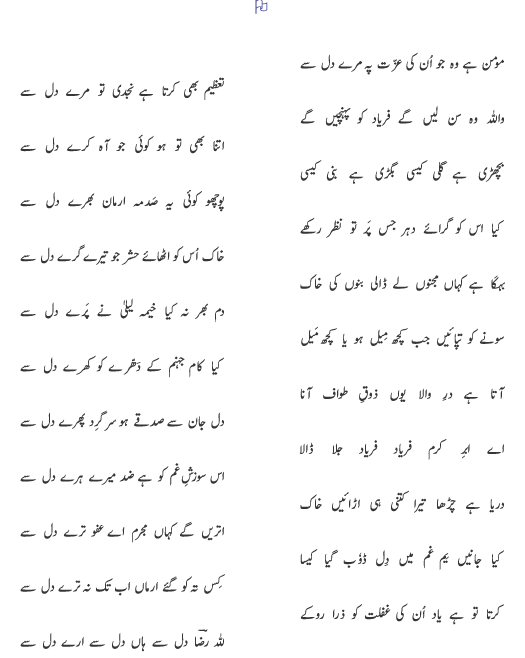 مومن ہے وہ جو اُن کی عزّت پہ مرے دل سے
تعظیم بھی کرتا ہے نجدی تو مرے دل سے
واللہ وہ سن لیں گے فریاد کو پہنچیں گے
اتنا بھی تو ہو کوئی جو آہ کرے دل سے
بچھڑی ہے گلی کیسی بگڑی ہے بنی کیسی
پوچھو کوئی یہ صَدمہ ارمان بھرے دل سے
کیا اس کو گرائے دہر جس پَر تو نظر رکھے
خاک اُس کو اٹھائے حشر جو تیرے گرے دل سے
بہکا ہے کہاں مجنوں لے ڈالی بنوں کی خاک
دم بھر نہ کیا خیمہ لیلیٰ نے پَرے دل سے
سونے کو تپائیں جب کچھ مِیل ہو یا کچھ مَیل
کیا کام جہنم کے دَھرے کو کھرے دل سے
آتا ہے درِ والا یوں ذوقِ طواف آنا
دل جان سے صدقے ہو سر گِرد پھرے دل سے
اے ابرِ کرم فریاد فریاد جلا ڈالا
اس سوزشِ غم کو ہے ضد میرے ہرے دل سے
دریا ہے چڑھا تیرا کتنی ہی اڑائیں خاک
اتریں گے کہاں مجرم اے عفو ترے دل سے
کیا جانیں یمِ غم میں دِل ڈوب گیا کیسا
کِس تہ کو گئے ارماں اب تک نہ ترے دل سے
کرتا تو ہے یاد اُن کی غفلت کو ذرا روکے
للہ رضؔا دل سے ہاں دل سے ارے دل سے